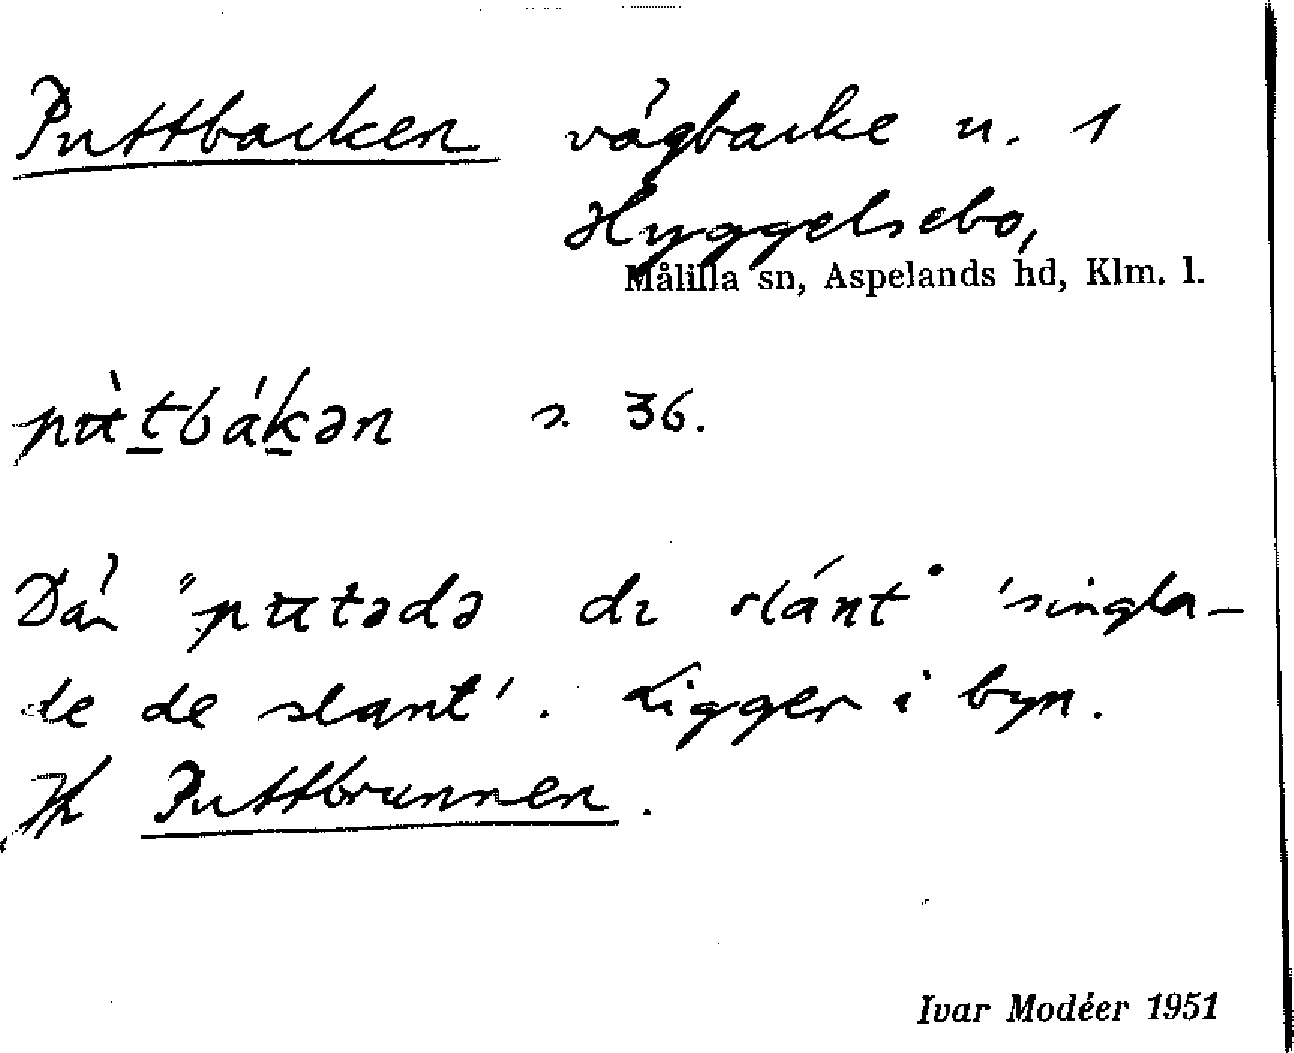 Puttbacken vägbacke n. 1
Hyggelsebo,
Målilla sn, Aspelands hd, Klm. l.
pùt̲bák̲ən s. 36.
Där "putədə dı slánt" 'singla-
de de slant'. Ligger i byn.
Jfr Puttbrunnen.
Ivar Modéer 1951